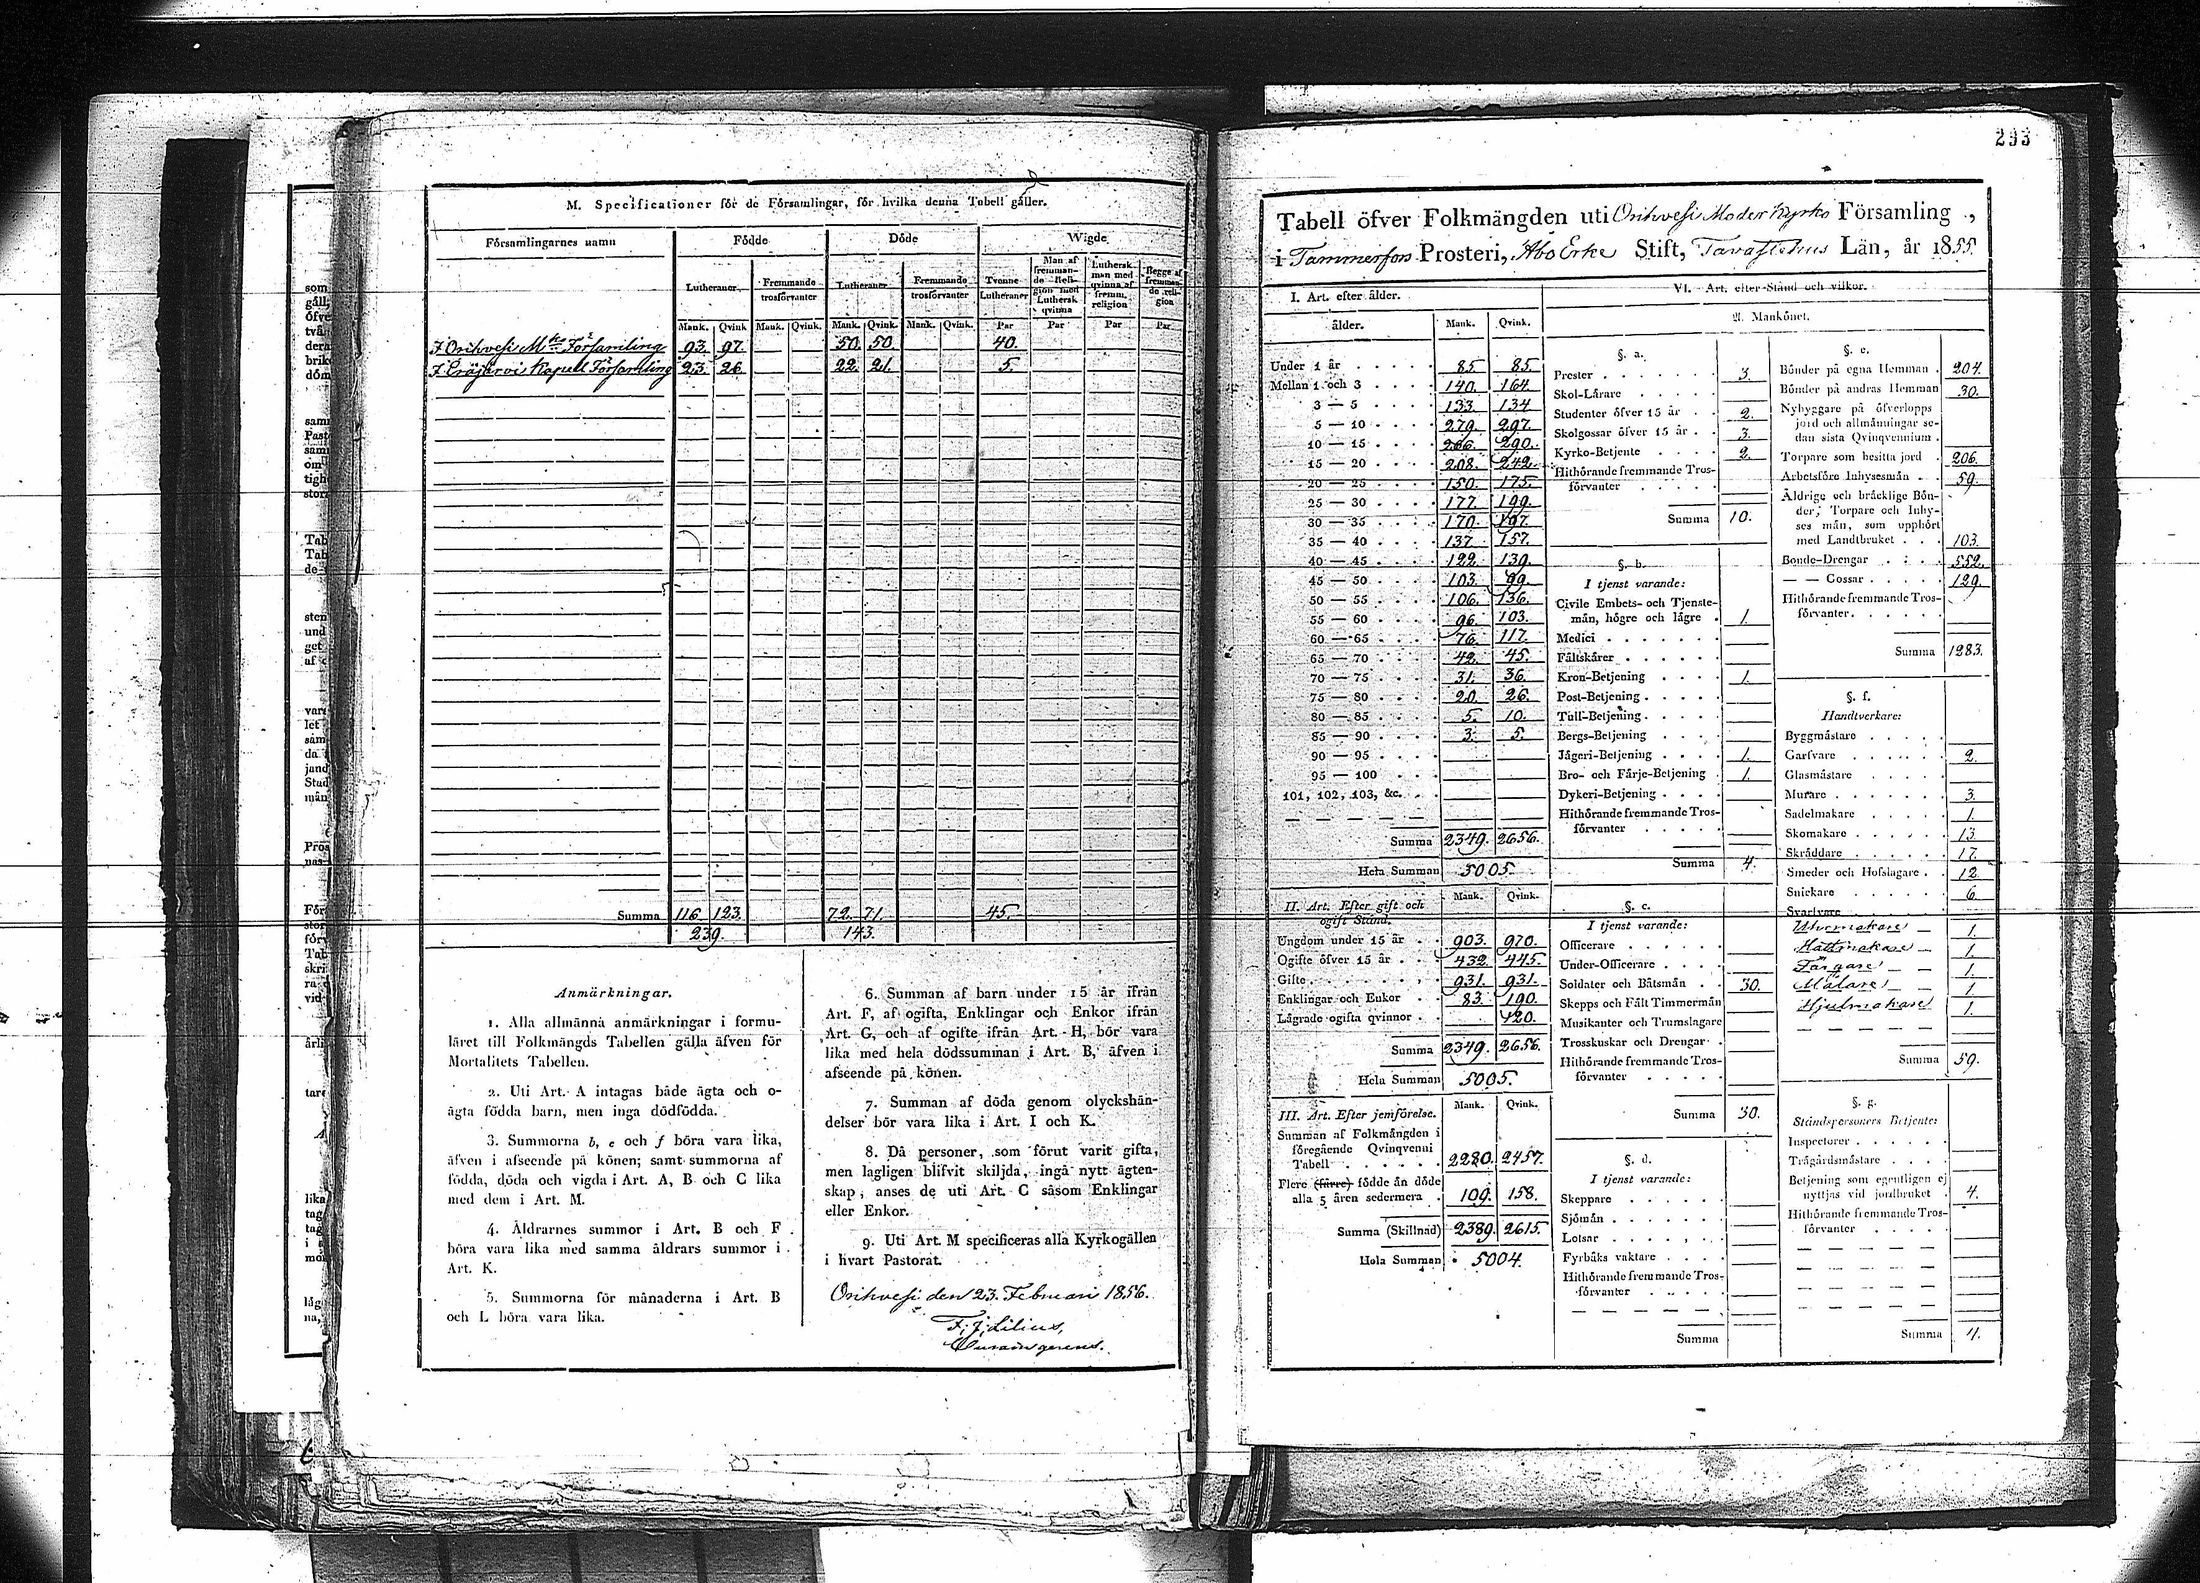 M. Specificationer för de Församlingar, för hvilka denna Tabell gäller.
Församlingarnes namn Födde Döde Wigde
Lutheraner Fremmande trosförvanter Lutheraner Fremmande trosförvanter Tvenne Lutheraner Man af fremmande Religion med Luthersk qvinna Luthersk man med qvinna af fremm. religion Begge af fremmande religion
Mank. Qvink Mank. Qvink. Mank. Qvink. Mank. Qvink. Par Par Par Par
I Orihvesi Mkr Församling 93. 97. 50. 50. 40.
I Eräjärvi Kapell Församling 23. 26 22. 21. 5.
Summa 116. 123. 72. 71. 45.
239. 143.
Anmärkningar.
1. Alla allmänna anmärkningar i formu-
läret till Folkmängds Tabellen gälla äfven för
Mortalitets Tabellen.
2. Uti Art. A intagas både ägta och o-
ägta födda barn, men inga dödfödda.
3. Summorna b, e och f böra vara lika,
äfven i afseende på könen; samt summorna af
födda, döda och vigda i Art. A, B och C lika
med dem i Art. M.
4. Åldrarnes summor i Art. B och F
böra vara lika med samma åldrars summor i
Art. K.
5. Summorna för månaderna i Art. B
och L böra vara lika.
6. Summan af barn under 15 år ifrån
Art. F, af ogifta, Enklingar och Enkor ifrån
Art. G, och af ogifte ifrån Art. H, bör vara
lika med hela dödssumman i Art. B, äfven i
afseende på könen.
7. Summan af döda genom olyckshän-
delser bör vara lika i Art. I och K.
8. Då personer, som förut varit gifta,
men lagligen blifvit skiljda, ingå nytt ägten-
skap, anses de uti Art. C såsom Enklingar
eller Enkor.
9. Uti Art. M specificeras alla Kyrkogällen
i hvart Pastorat.
Orihvesi den 23. Februari 1856.
F. J. Lilius,
233
Tabell öfver Folkmängden uti Orihvesi Moder Kyrko Församling,
i Tammerfors Prosteri, Åbo Erke Stift, Tavastehus Län, år 1855.
I. Art. efter ålder.
ålder. Mank. Qvink.
Under 1 år 85 85.
Mellan 1 och 3 140. 164
3 — 5 133. 134
5 — 10 279. 297.
10 — 15 266. 290.
15 — 20 208. 242.
20 — 25 150. 175.
25 — 30 177. 199.
30 — 35 170. 197.
35 — 40 137. 157.
40 — 45 122. 139.
45 — 50 103. 99.
50 — 55 106. 136.
55 — 60 96. 103.
60 — 65 76. 117.
65 — 70 42. 45.
70 — 75 31. 36.
75 — 80 20. 26.
80 — 85 5. 10.
85 — 90 3. 5.
90 — 95
95 — 100
101, 102, 103, &c.
Summa 2349. 2656.
Hela Summan 5005.
II. Art. Efter gift och ogift Stånd. Mank. Qvink.
Ungdom under 15 år 903. 970.
Ogifte öfver 15 år 432. 445.
Gifte 931. 931.
Enklingar och Enkor 83. 190.
Lägrade ogifta qvinnor 120.
Summa 2349. 2656.
Hela Summan 5005.
III. Art. Efter jemförelse. Mank. Qvink.
Summan af Folkmängden i
föregående Qvinqvenni
Tabell 2280. 2457.
Flere (färre) födde än döde
alla 5 åren sedermera 109. 158.
Summa (Skillnad) 2389. 2615.
Hela Summan 5004.
VI. Art. efter Stånd och vilkor.
A. Mankönet.
§. a.
Prester 3.
Skol-Lärare
Studenter öfver 15 år 2.
Skolgossar öfver 15 år 3.
Kyrko-Betjente 2.
Hithörande fremmande Tros-
förvanter
Summa 10.
§. b.
I tjenst varande:
Civile Embets- och Tjenste-
män, högre och lägre 1.
Medici
Fältskärer
Kron-Betjening 1.
Post-Betjening
Tull-Betjening
Bergs-Betjening
Jägeri-Betjening 1.
Bro- och Färje-Betjening 1.
Dykeri-Betjening
Hithörande fremmande Tros-
förvanter
Summa 4.
§. c.
I tjenst varande:
Officerare
Under-Officerare
Soldater och Båtsmän 30.
Skepps och Fält Timmermän
Musikanter och Trumslagare
Trosskuskar och Drengar
Hithörande fremmande Tros-
förvanter
Summa 30.
§. d.
I tjenst varande:
Skeppare
Sjömän
Lotsar
Fyrbåks vaktare
Hithörande fremmande Tros-
förvanter
Summa
§. e.
Bönder på egna Hemman 204.
Bönder på andras Hemman 30.
Nybyggare på öfverlopps
jord och allmänningar se-
dan sista Qvinqvennium
Torpare som besitta jord 206.
Arbetsföre Inhysesmän 59.
Åldrige och bräcklige Bön-
der, Torpare och Inhy-
ses män, som upphört
med Landtbruket 103.
Bonde-Drengar 552.
— — Gossar 129.
Hithörande fremmande Tros-
förvanter
Summa 1283.
§. f.
Handtverkare:
Byggmästare
Garfvare 2.
Glasmästare
Murare 3.
Sadelmakare 1.
Skomakare 13.
Skräddare 17.
Smeder och Hofslagare 12
Snickare 6.
Svarfvare
Urmakare 1.
Hattmakare 1.
Färgare 1.
Målare 1.
Hjulmakare 1.
Summa 59.
§. g.
Ståndspersoners Betjente:
Inspectorer
Trägårdsmästare
Betjening som egentligen ej
nyttjas vid jordbruket 4.
Hithörande fremmande Tros-
förvanter
Summa 4.